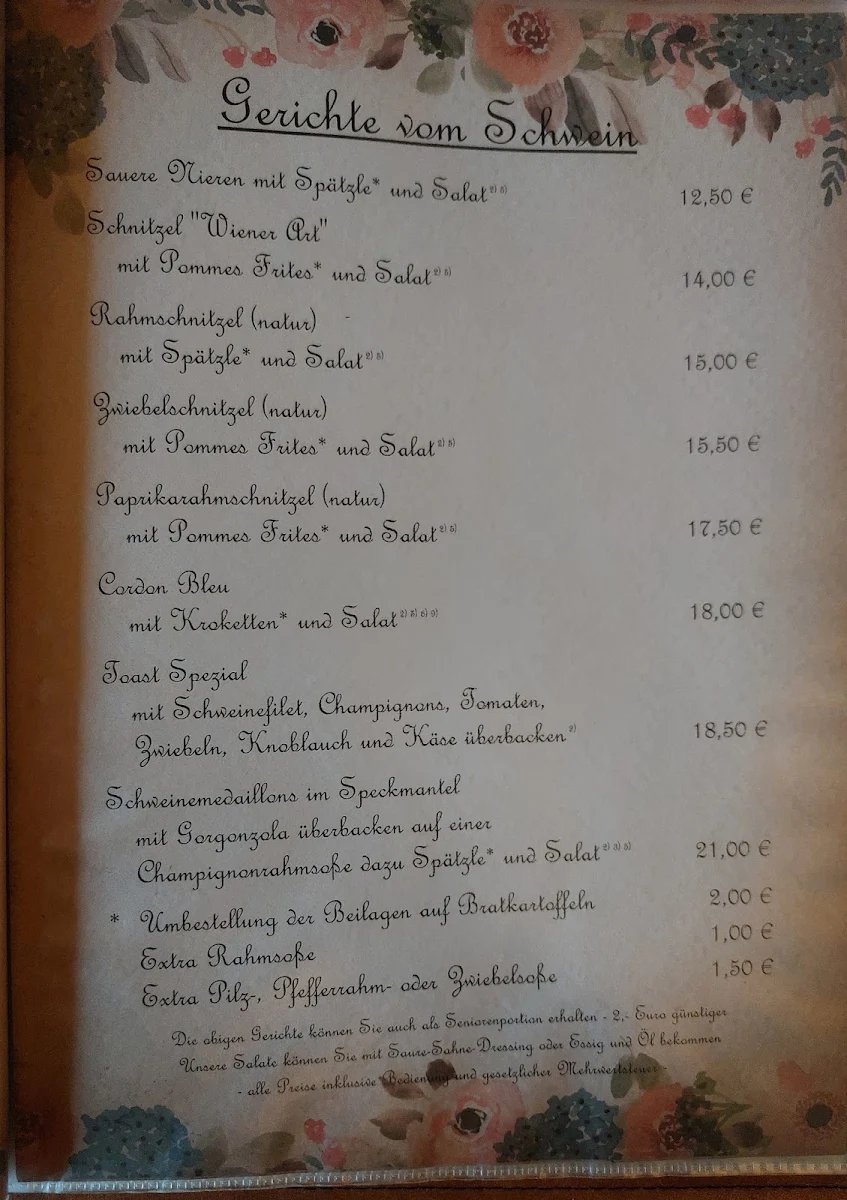 Gerichte vom Schwein
Sauere Nieren mit Spätzle* und Salat 2) 5) 12,50 €
Schnitzel "Wiener Art"
mit Pommes Frites* und Salat 2) 5) 14,00 €
Rahmschnitzel (natur)
mit Spätzle* und Salat 2) 5) 15,00 €
Zwiebelschnitzel (natur)
mit Pommes Frites* und Salat 2) 5) 15,50 €
Paprikarahmschnitzel (natur)
mit Pommes Frites* und Salat 2) 5) 17,50 €
Cordon Bleu
mit Kroketten* und Salat 18,00 €
Toast Spezial
mit Schweinefilet, Champignons, Tomaten,
Zwiebeln, Knoblauch und Käse überbacken 18,50 €
Schweinemedaillons im Speckmantel
mit Gorgonzola überbacken auf einer
Champignonrahmsoße dazu Spätzle* und Salat 2) 3) 5) 21,00 €
* Umbestellung der Beilagen auf Bratkartoffeln 2,00 €
Extra Rahmsoße 1,00 €
Extra Pilz-, Pfefferrahm- oder Zwiebelsoße 1,50 €
Die obigen Gerichte können Sie auch als Seniorenportion erhalten - 2,- Euro günstiger
Unsere Salate können Sie mit Saure-Sahne-Dressing oder Essig und Öl bekommen
- alle Preise inklusive Bedienung und gesetzlicher Mehrwertsteuer -